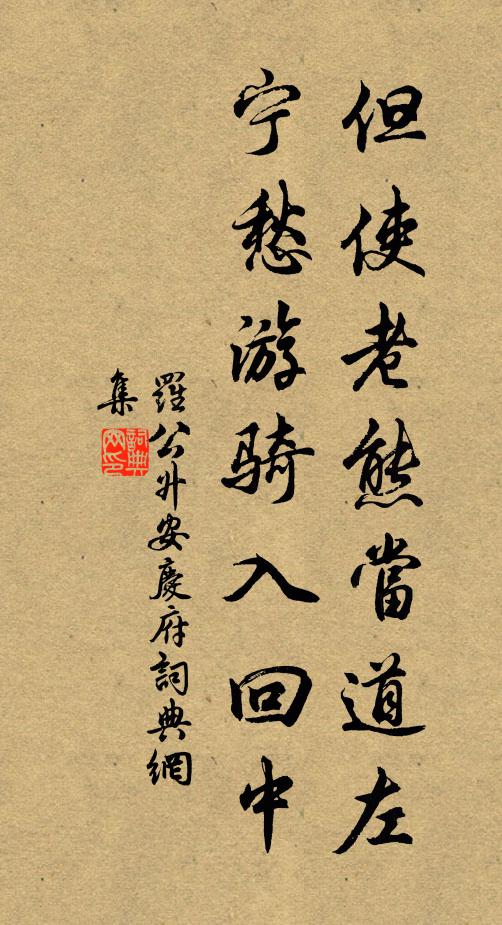 但使老熊當道左
宁愁游骑入回中
羅公升安慶府詞典網
集
詞典
网印